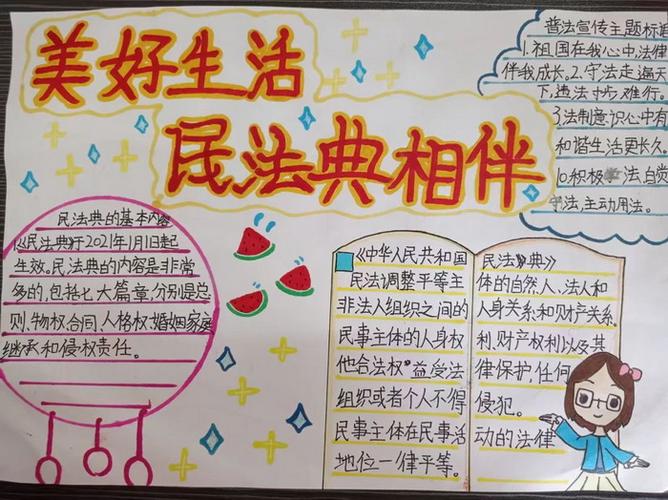 美好生活
民法典相伴
普法宣传主题标
1.祖国在我心中,法律
伴我成长。2.守法走遍天
下,违法寸步难行。
3法制意识心中有
和谐生活更长久。
10.积极学法,自觉
守法,主动用法。
民法典的基本内容
《民法典》于2021年1月1日起
生效。民法典的内容是非常
多的,包括七大篇章,分别是总
则,物权,合同,人格权,婚姻家庭
继承和侵权责任。
《中华人民共和国
民法调整平等主
非法人组织之间的
民事主体的人身权
他合法权益受法
组织或者个人不得
民事主体在民事活
地位一律平等。
民法》典》
体的自然人、法人和
人身关系和财产关系.
利、财产权利以及其
律保护,任何
侵犯。
动的法律